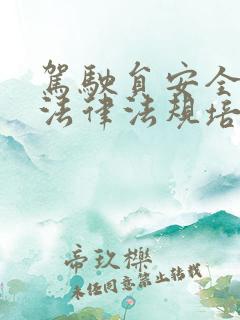 駕駛員安全
法律法規培
帝玖櫟
未经同意禁止转载